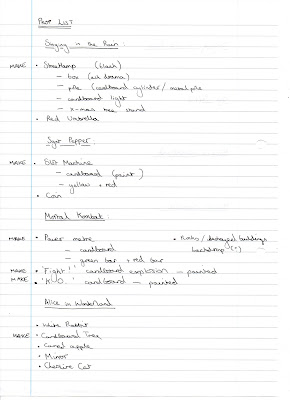 PROP LIST
Singing in the Rain
MAKE • Streetlamp (black)
– box (ask drama)
– pole (cardboard cylinder / metal pole
– cardboard light
– x-mas tree stand
• Red Umbrella
Sgt Pepper
MAKE • Slot Machine
– cardboard (paint)
– yellow + red
• Coin
Mortal Kombat:
MAKE • Power metre
– cardboard
– green bar + red bar
• / destroyed buildings
backdrop (?)
MAKE • 'Fight!' cardboard explosion – painted
MAKE • 'K.O.' cardboard – painted
Alice in Wonderland
• White Rabbit
MAKE • Cardboard Tree
• apple
• Mirror
• Chesire Cat